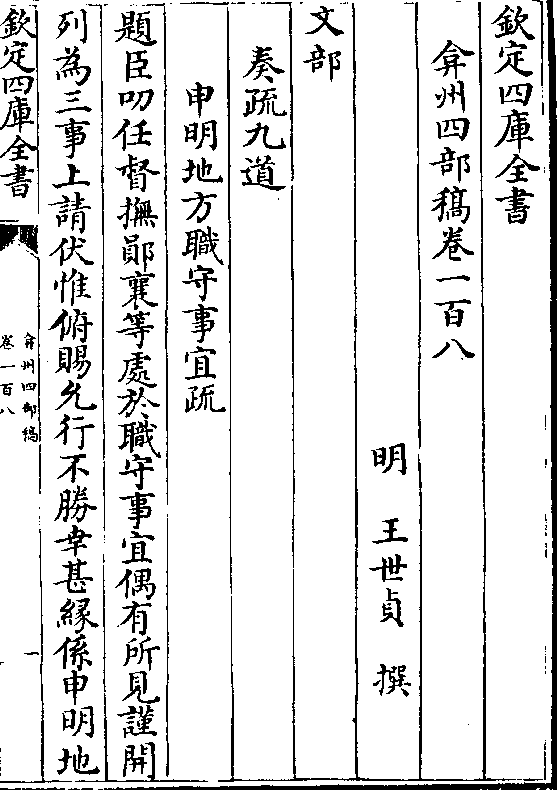 欽定四庫全書
弇州四部稿卷一百八
明 王世貞 撰
文部
奏疏九道
申明地方職守事宜疏
題臣叨任督撫鄖襄等處於職守事宜偶有所見謹開
列為三事上請伏惟俯賜允行不勝幸甚緣係申明地
欽定四庫全書
弇州四部稿
卷一百八
一